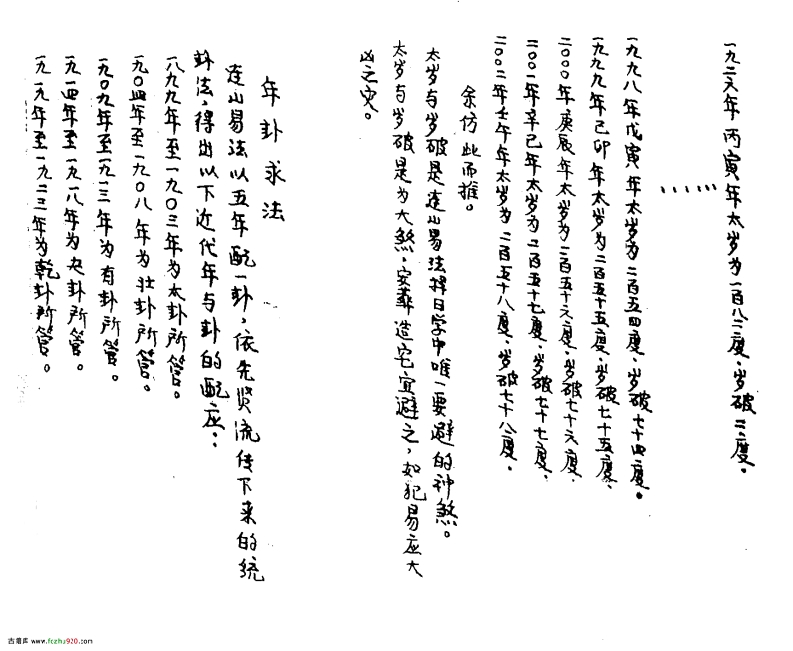 一九二六年丙寅年太岁为一百八二度、岁破二度。
……
一九九八年戊寅年太岁为二百五四度、岁破七十四度。
一九九九年己卯年太岁为二百五十五度、岁破七十五度、
二000年庚辰年太岁为二百五十六度、岁破七十六度、
二00一年辛巳年太岁为二百五十七度、岁破七十七度、
二00二年壬午年太岁为二百五十八度、岁破七十八度。
余仿此而推。
太岁与岁破是连山易法择日学中唯一要避的神煞。
太岁与岁破是为大煞，安葬造宅宜避之，如犯易应大
凶之灾。
年卦求法
连山易法以五年配一卦，依先贤流传下来的统
卦法，得出以下近代年与卦的配应：
一八九九年至一九0三年为太卦所管。
一九0四年至一九0八年为壮卦所管。
一九0九年至一九一三年为有卦所管。
一九一四年至一九一八年为夬卦所管。
一九一九年至一九二三年为乾卦所管。
www.fozhu920.com